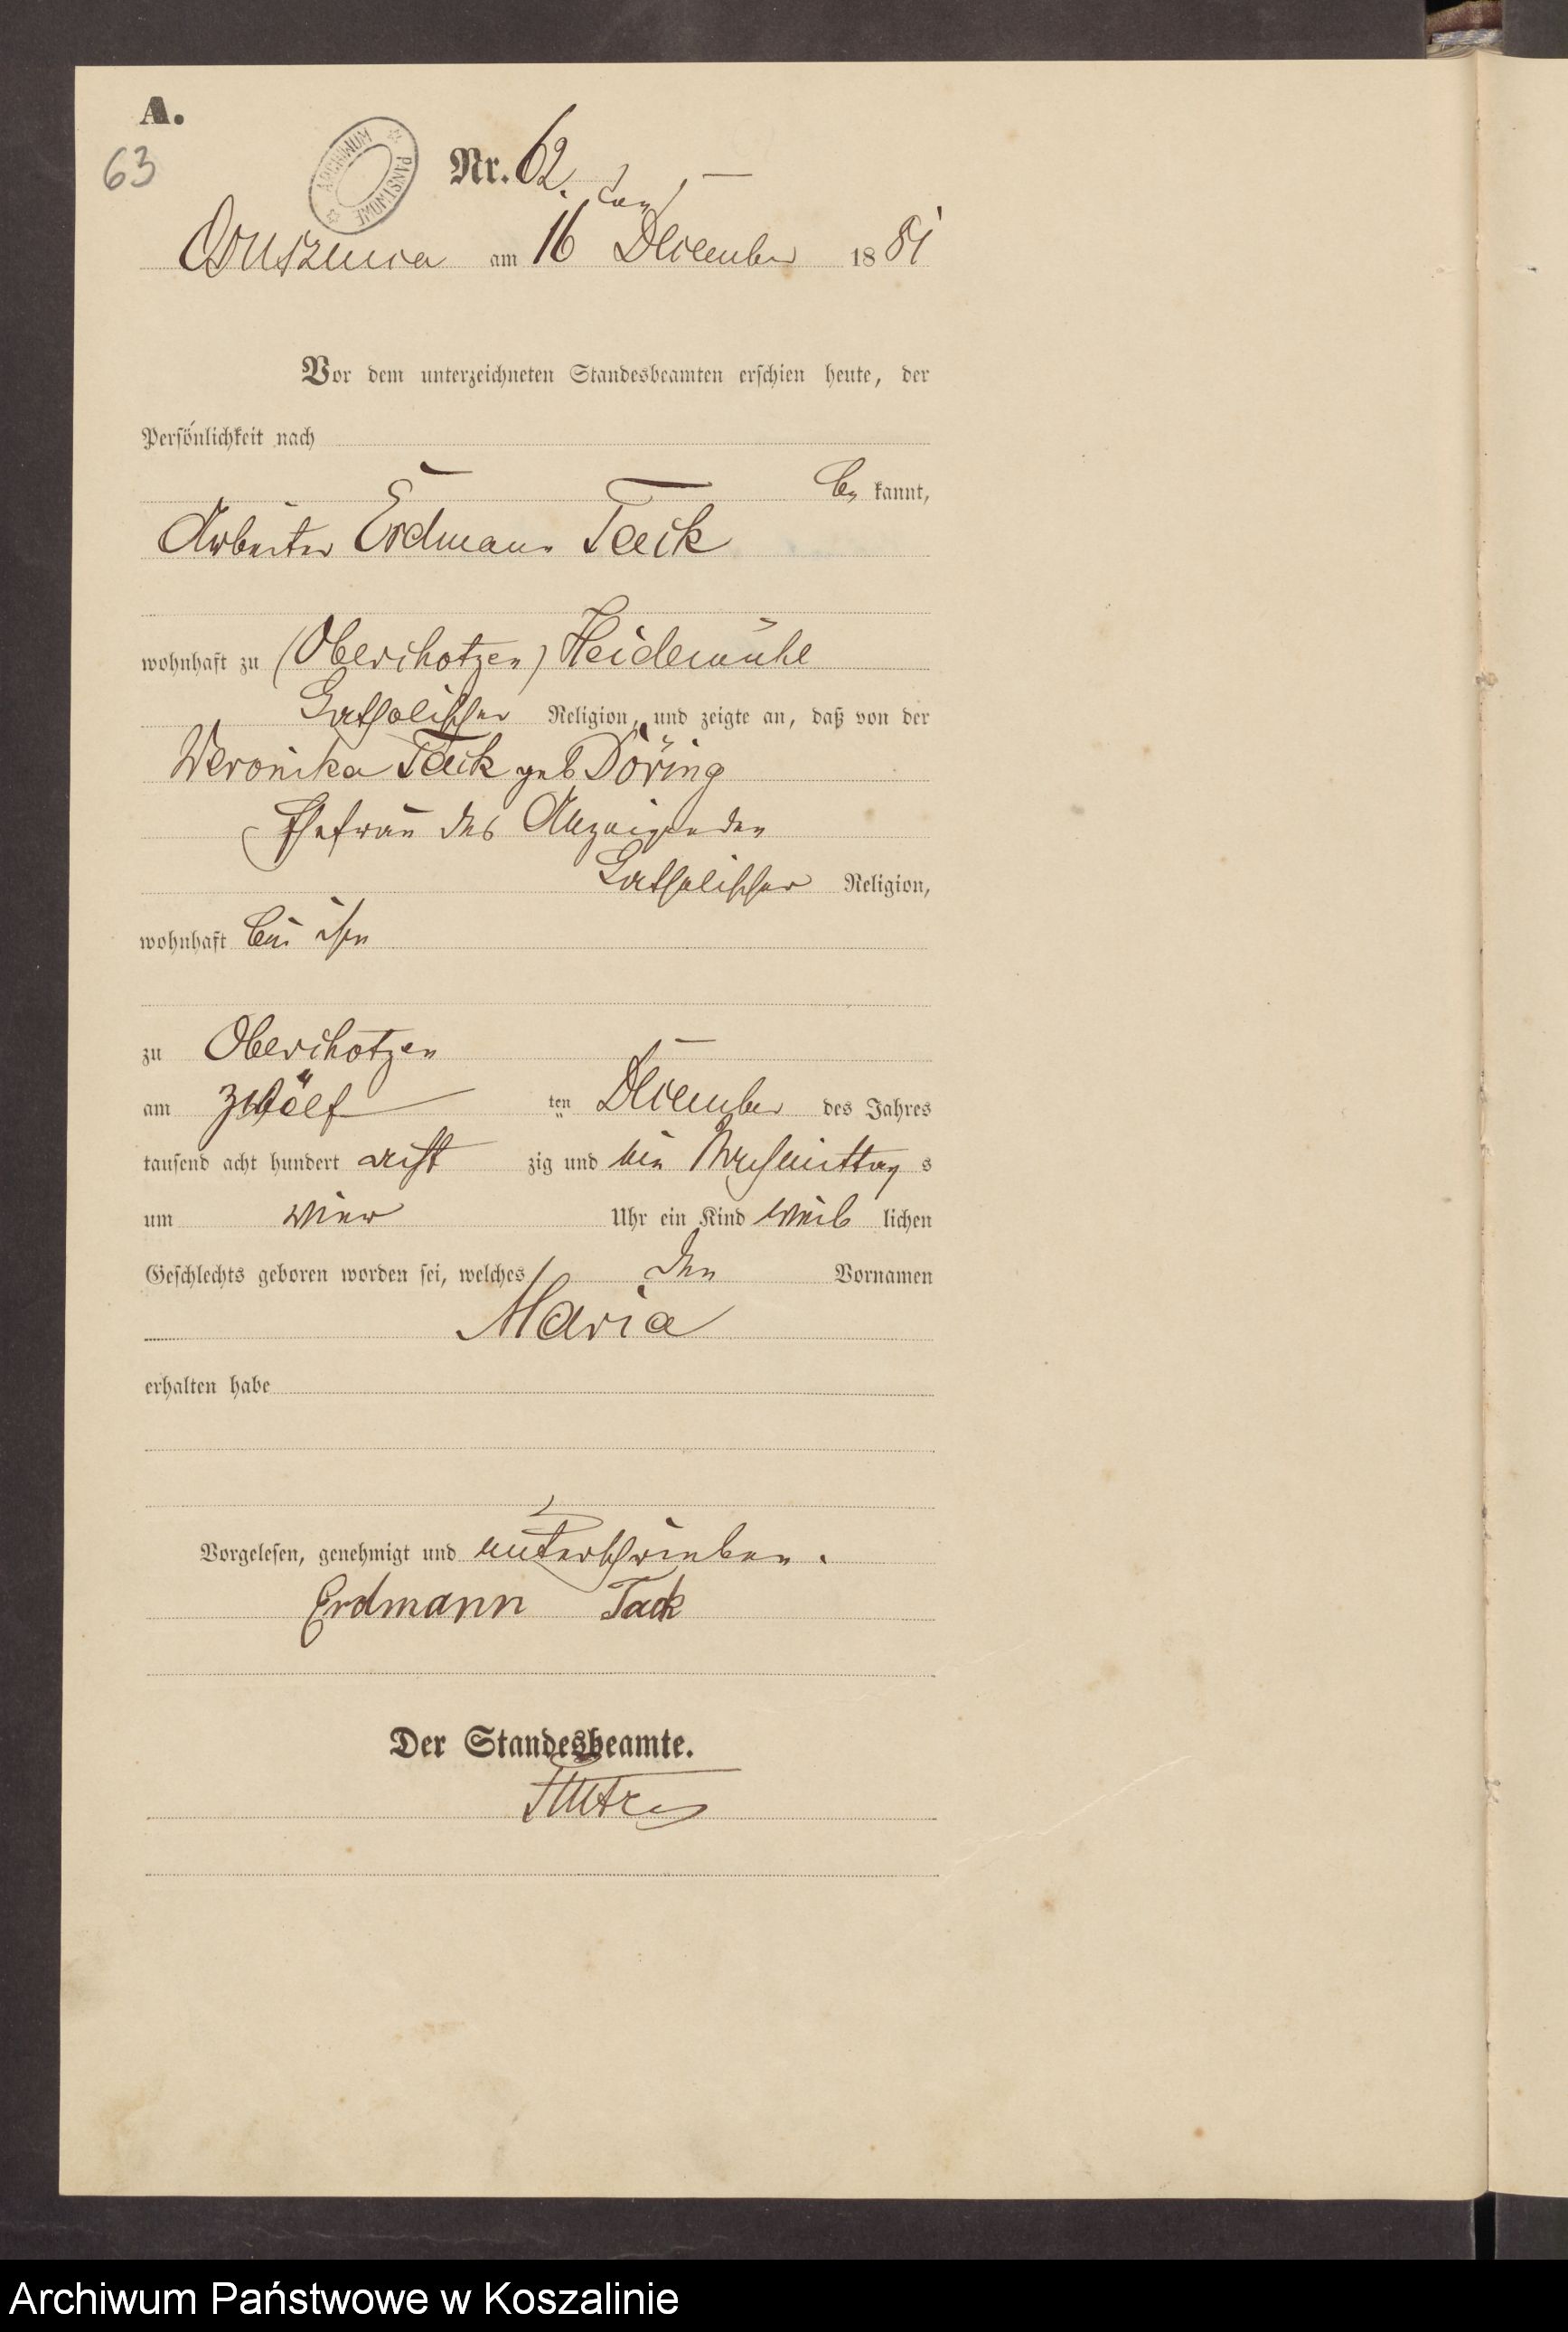 A.
63
ARCHIWUM PAŃSTWOWE
Nr. 62.
am 16 ten December 18 81
Vor dem unterzeichneten Standesbeamten erschien heute, der
Persönlichkeit nach
be kannt,
Arbeiter Erdmann Tack
wohnhaft zu (Oberchotzen) Heidemühl
katholischer Religion, und zeigte an, daß von der
Weronika Tack geb Döring
Ehefrau des Anzeigenden
katholischer Religion,
wohnhaft bei ihm
zu Oberchotzen
am zwölf ten December des Jahres
tausend acht hundert acht zig und ein Nachmittag s
um vier Uhr ein Kind weib lichen
Geschlechts geboren worden sei, welches den Vornamen
Maria
erhalten habe
Vorgelesen, genehmigt und unterschrieben.
Erdmann Tack
Der Standesbeamte.
Archiwum Państwowe w Koszalinie